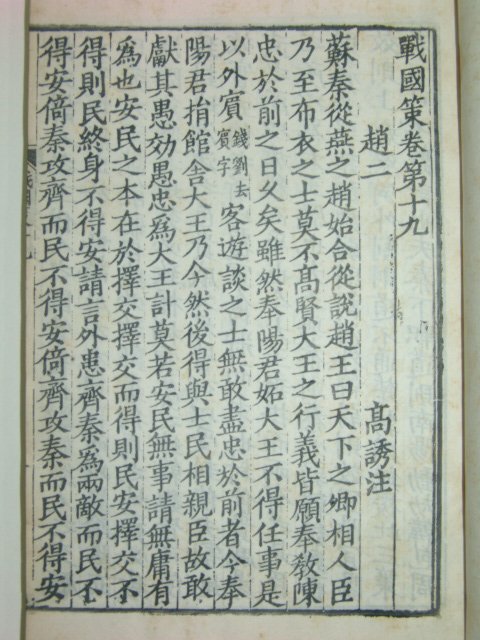 戰國策卷第十九
趙二　高誘注
蘇秦從燕之趙始合從說趙王曰天下之卿相人臣
乃至布衣之士莫不髙賢大王之行義皆願奉敎陳
忠於前之日久矣雖然奉陽君妬大王不得任事是
以外賔錢劉去賔字客遊談之士無敢盡忠於前者今奉
陽君捐館舍大王乃今然後得與士民相親臣故敢
獻其愚効愚忠爲大王計莫若安民無事請無庸有
爲也安民之本在於擇交擇交而得則民安擇交不
得則民終身不得安請言外患齊秦爲兩敵而民不
得安倚秦攻齊而民不得安倚齊攻秦而民不得安